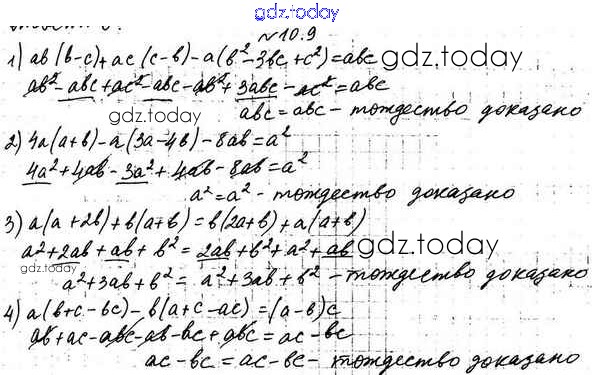 gdz.today
№10.9
1) ab(b-c)+ac(c-b)-a(b²-3bc+c²)=abc gdz.today
ab²-abc+ac²-abc-ab²+3abc-ac²=abc
gdz.today abc=abc- тождество доказано
2) 4a(a+b)-a(3a-4b)-8ab=a²
4a²+4ab-3a²+4ab-8ab=a²
a²=a²- тождество доказано
3) a(a+2b)+b(a+b)=b(2a+b)+a(a+b)
a²+2ab+ab+b²=2ab+b²+a²+ab gdz.today
gdz.today a²+3ab+b²=a²+3ab+b²- тождество доказано
4) a(b+c-bc)-b(a+c-ac)=(a-b)c
ab+ac-abc-ab-bc+abc=ac-bc
ac-bc=ac-bc- тождество доказано